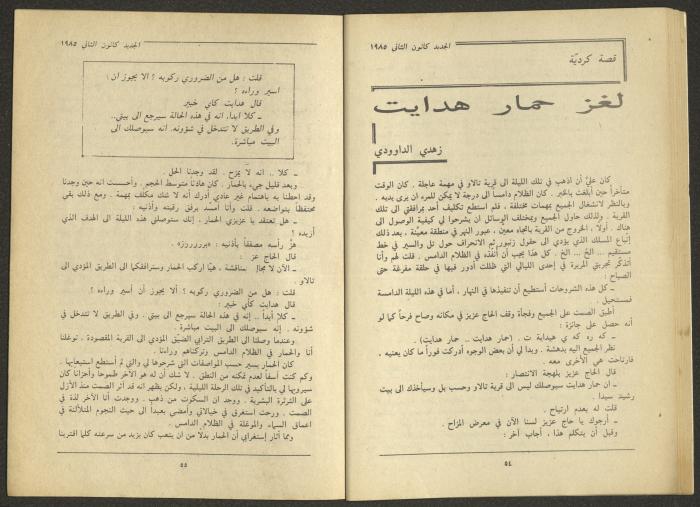 الجديد كانون الثاني ١٩٨٥
قصة كرديّة
لغز حمار هدايت
زهدي الداوودي
كان عليّ ان اذهب في تلك الليلة الى قرية تالاو في مهمة عاجلة . كان الوقت
متأخراً حين ابلغت بالخبر . كان الظلام دامساً الى درجة لا يمكن للمرء ان يرى يديه .
وبالنظر لانشغال الجميع بمهمات مختلفة ، فلم استطع تكليف أحد بمرافقتي الى تلك
القرية . ولذلك حاول الجميع وبمختلف الوسائل ان يشرحوا لي كيفية الوصول الى
هناك . أولا ، الخروج من القرية باتجاه معين ، عبور النهر في منطقة معيّنة ، بعد ذلك
إتّباع المسلك الذي يؤدي الى حقول زنبور ثم الانحراف حول تل والسير في خط
مستقيم ... الخ ... الخ . كل هذا يجب أن أنفّذه في الظلام الدامس . قلت لهم وأنا
أتذكّر تجربتي المريرة في إحدى الليالي التي ظللت أدور فيها في حلقة مفرغة حتى
الصباح :
ـ كل هذه الشروحات أستطيع أن تنفيذها في النهار ، أما في هذه الليلة الدامسة
فمستحيل .
أطبق الصمت على الجميع وفجأة وقف الحاج عزيز في مكانه وصاح فرحاً كما لو
أنه حصل على جائزة :
ـ كه ره كه ي هيدايه ت . (حمار هدايت .. حمار هدايت) .
نظر الجميع اليه بدهشة . وبدا لي أن بعض الوجوه أدركت فوراً ما كان يعنيه ،
فارتاحت هي الأخرى معه .
قال الحاج عزيز بلهجة الانتصار :
ـ ان حمار هدايت سيوصلك ليس الى قرية تالاو وحسب بل وسيأخذك الى بيت
رشيد سيدا .
قلت له بعدم ارتياح .
ـ أرجوك يا حاج عزيز لسنا الآن في معرض المزاح .
وقبل أن يتكلم هذا ، أجاب آخر :
٥٤
الجديد كانون الثاني ١٩٨٥
قلت : هل من الضروري ركوبه ؟ الا يجوز ان
اسير وراءه ؟
قال هدايت كأي خبير
ـ كلا ابدا، انه في هذه الحالة سيرجع الى بيتي..
وفي الطريق لا تتدخل في شؤونه. انه سيوصلك الى
البيت مباشرة.
ـ كلا .. انه لا يمزح . لقد وجدنا الحل
وبعد قليل جيء بالحمار . كان هادئاً متوسط الحجم . وأحسست انه حين وجدنا
وقد احطنا به باهتمام غير عادي أدرك أنه لا شك مكلف بمهمة . ومع ذلك بقي
محتفظاً بتواضعه . قلت وأنا أمسد برفق رقبته وأذنيه :
ـ هل تعتقد يا عزيزي الحمار . إنك ستوصلني هذه الليلة الى الهدف الذي
أريده !
هزّ رأسه مصفقاً بأذنيه :
قال الحاج عز :
ـ الآن لا مجال مناقشة ، هيّا اركب الحمار وسنرافقكما الى الطريق المؤدي الى
تالاو .
قلت : هل من الضروري ركوبه ؟ ألا يجوز أن أسير وراءه ؟
قال هدايت كأي خبير :
ـ كلا أبداً .. إنه في هذه الحالة سيرجع الى بيتي . وفي الطريق لا تتدخل في
شؤونه . إنه سيوصلك الى البيت مباشرة .
وعندما وصلنا الى الطريق الترابي الضيّق المؤدي الى القرية المقصودة . توغلنا
أنا والحمار في الظلام الدامس وتركناهم وراءنا .
كان الحمار يسير حسب المواصفات التي شرحوها لي والتي لم أستطع استيعابها .
وكم كنت آسفاً لعدم تمكنه من النطق . لا شك أن له هو الآخر طموحاً وأحزاناً كان
سيرويها لي بالتأكيد في تلك الرحلة الليلية ، ولكن يظهر انه قد آثر الصمت منذ الأزل
على الثرثرة البشرية . ووجد ان السكوت من ذهب . ووجدت أنا الآخر لذة في
الصمت . ورحت استغرق في خيالاتي وأمضي بعيداً الى حيث النجوم المتلألئة في
اعماق السماء والموغلة في الظلام الدامس .
ومما أثار إستغرابي أن الحمار بدلاً من ان يتعب كان يزيد من سرعته كلما اقتربنا
٥٥